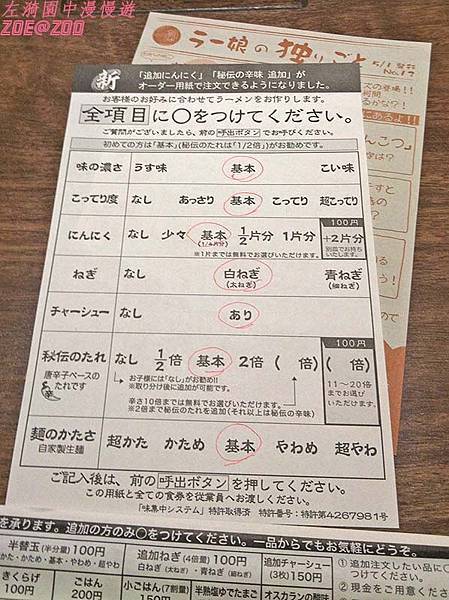 左漪園中漫慢遊
ZOE@ZOO
ラー娘の独りごと
5/1 発行
No.17
新 「追加にんにく」「秘伝の辛味 追加」が
オーダー用紙で注文できるようになりました。
お客様のお好みに合わせてラーメンをお作りします。
全項目に○をつけてください。
ご質問がございましたら、前の 呼出ボタン でお呼びください。
初めての方は「基本」(秘伝のたれは「1/2倍」)がお勧めです。
味の濃さ うす味 基本 こい味
こってり度 なし あっさり 基本 こってり 超こってり
100円
にんにく なし 少々 基本 1/2片分 1片分 +2片分
(1/4片分) 別皿でお持ちいたします。
※1片までは無料でお選びいただけます。
ねぎ なし 白ねぎ 青ねぎ
(太ねぎ) (細ねぎ)
チャーシュー なし あり
100円
秘伝のたれ なし 1/2倍 基本 2倍 ( 倍) ( 倍)
唐辛子ベースのたれです
辛
お子様には「なし」がお勧め!!
※取り分け後に追加が可能です。
11〜20倍までお選びいただけます。
辛さ10倍までは無料でお選びいただけます。
※2倍まで秘伝のたれを追加(それ以上は秘伝の辛味)
麺のかたさ 超かた かため 基本 やわめ 超やわ
自家製生麺
ご記入後は、前の 呼出ボタン を押してください。
この用紙と全ての食券を従業員へお渡しください。
「味集中システム」特許取得済 特許番号:特許第4267981号
を承ります。追加の方のみ○をつけてください。一品からでもお気軽にどうぞ。
半替玉(半分量)100円
かた・かため・基本・やわめ・超やわ
追加ねぎ(4倍量)100円
白ねぎ(太ねぎ)・青ねぎ(細ねぎ)
追加チャーシュー
(3枚)150円
① 追加注文したい品に○
つけてください。
② 現金をご用意くださ
きくらげ
100円
ごはん
200円
小ごはん(7割量)
150円
半熟塩ゆでたまご
オスカランの酸味